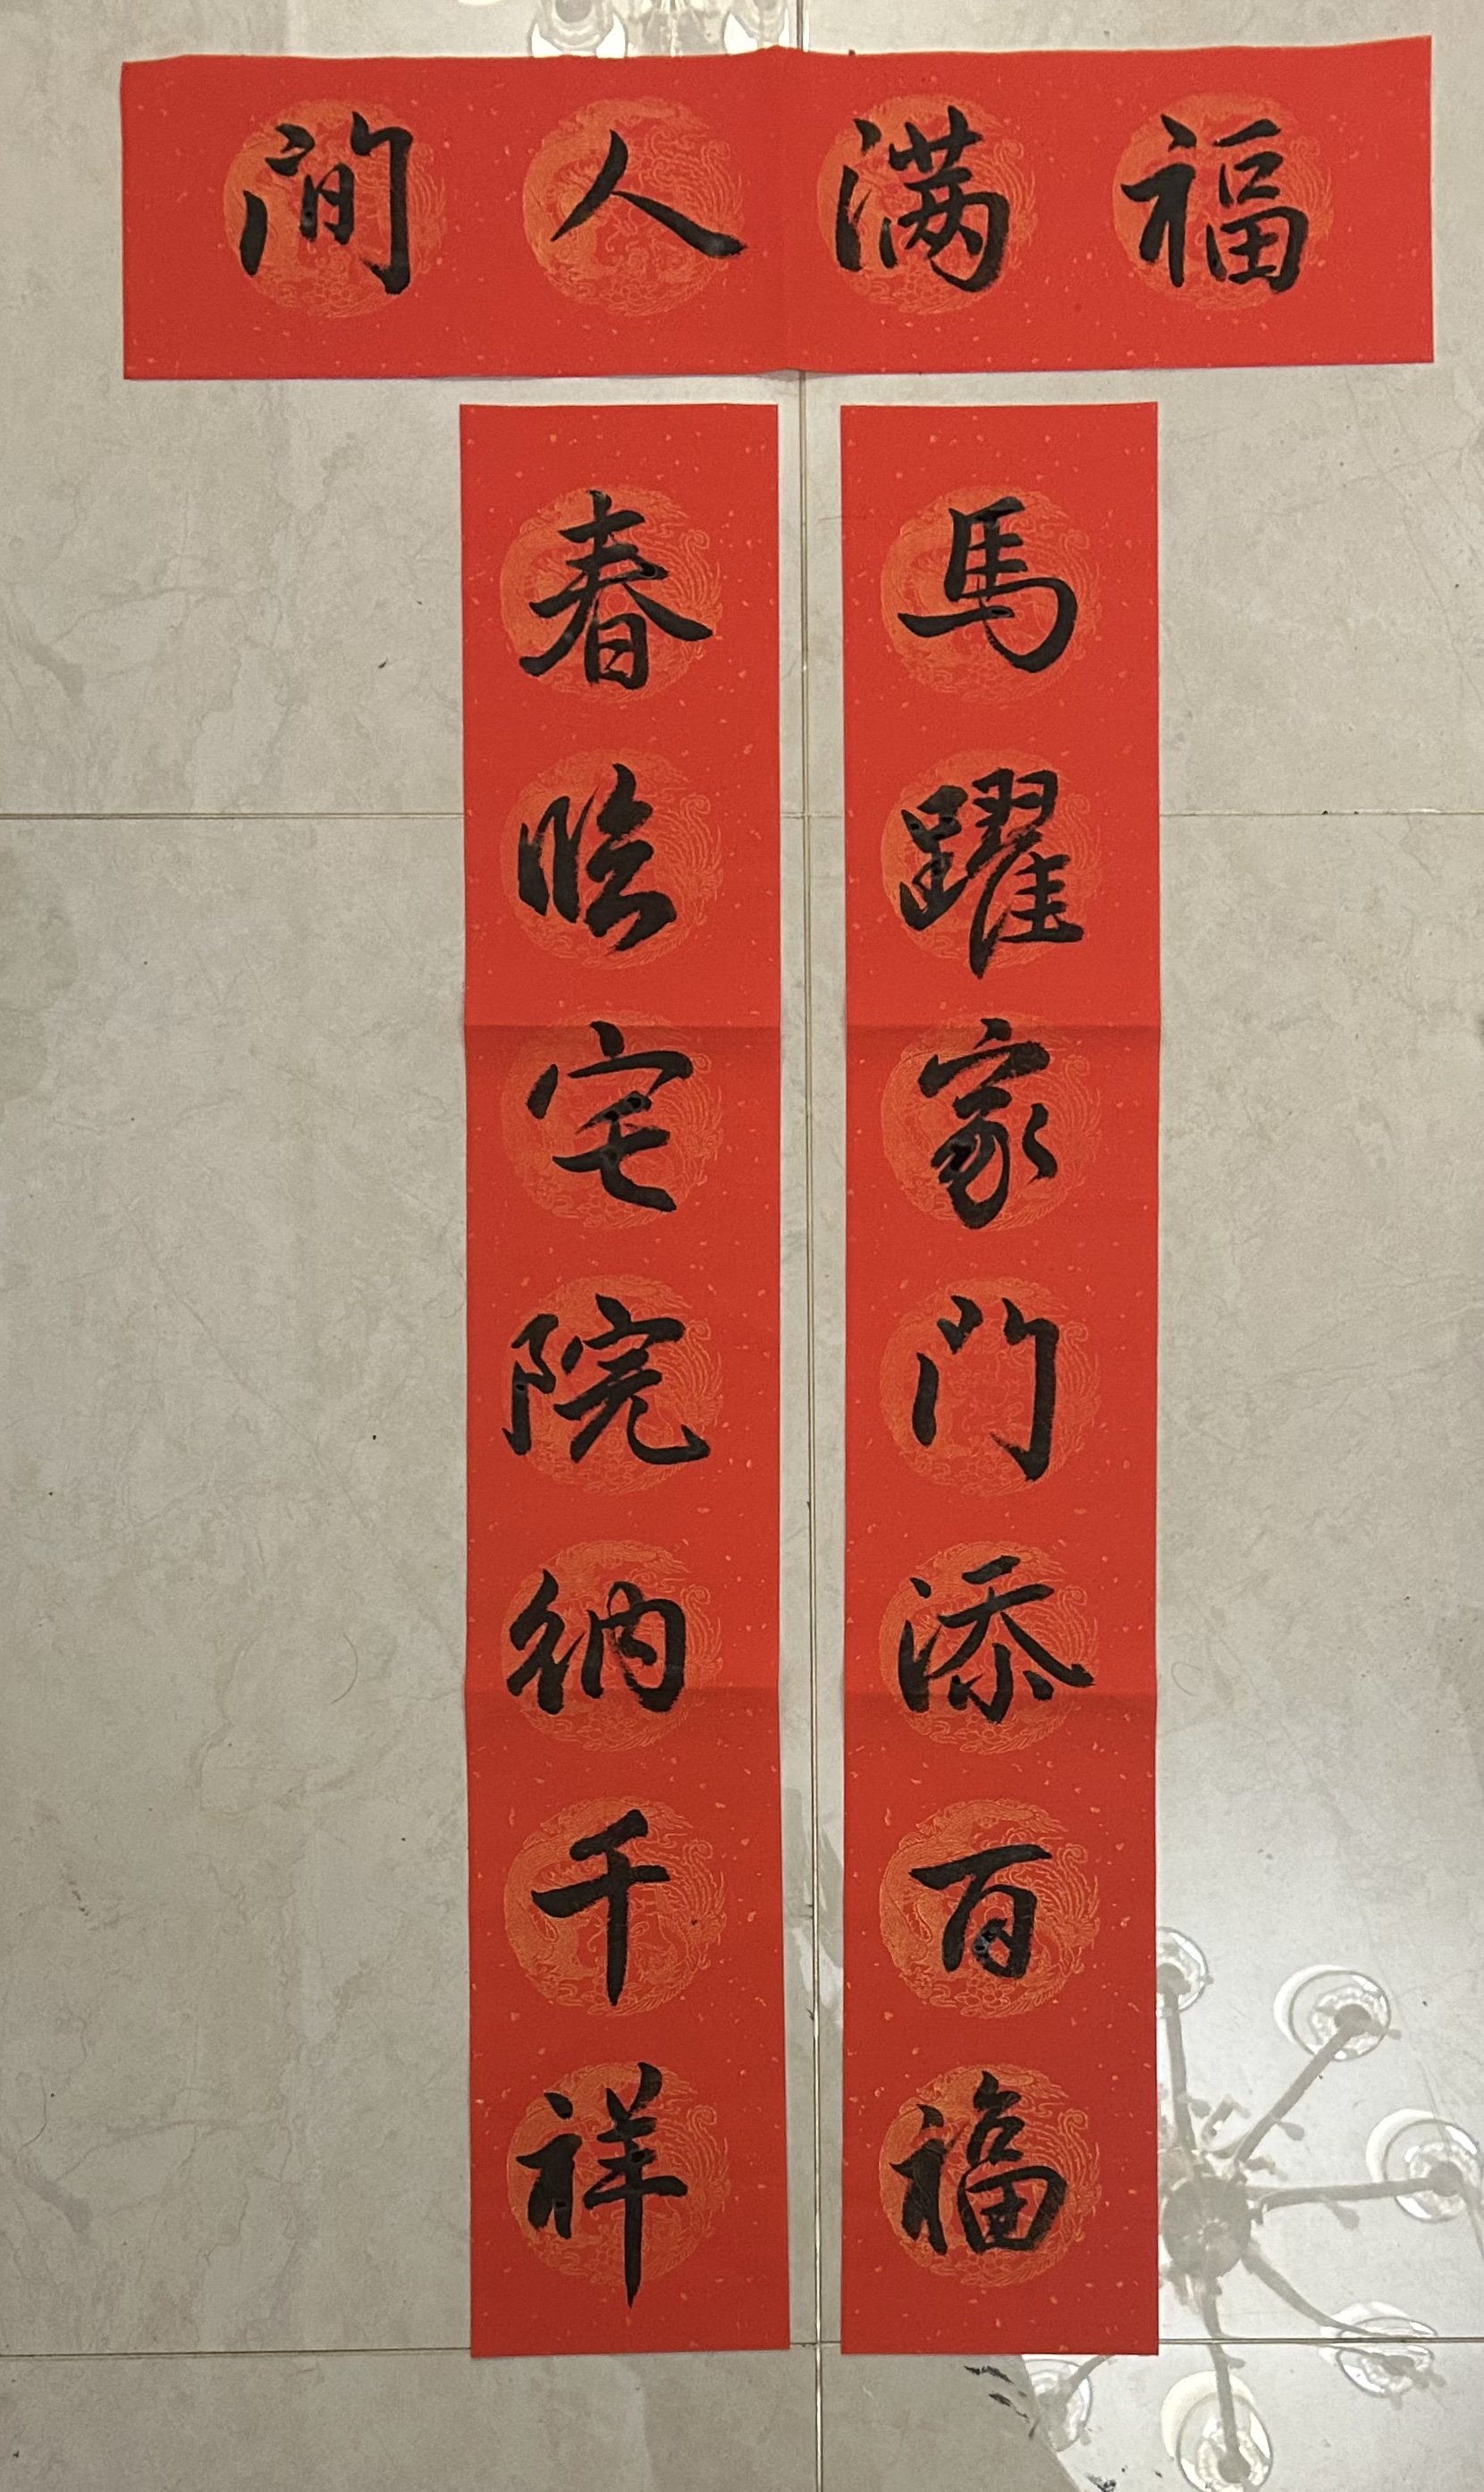 福满人间
馬躍家门添百福
春臨宅院納千祥